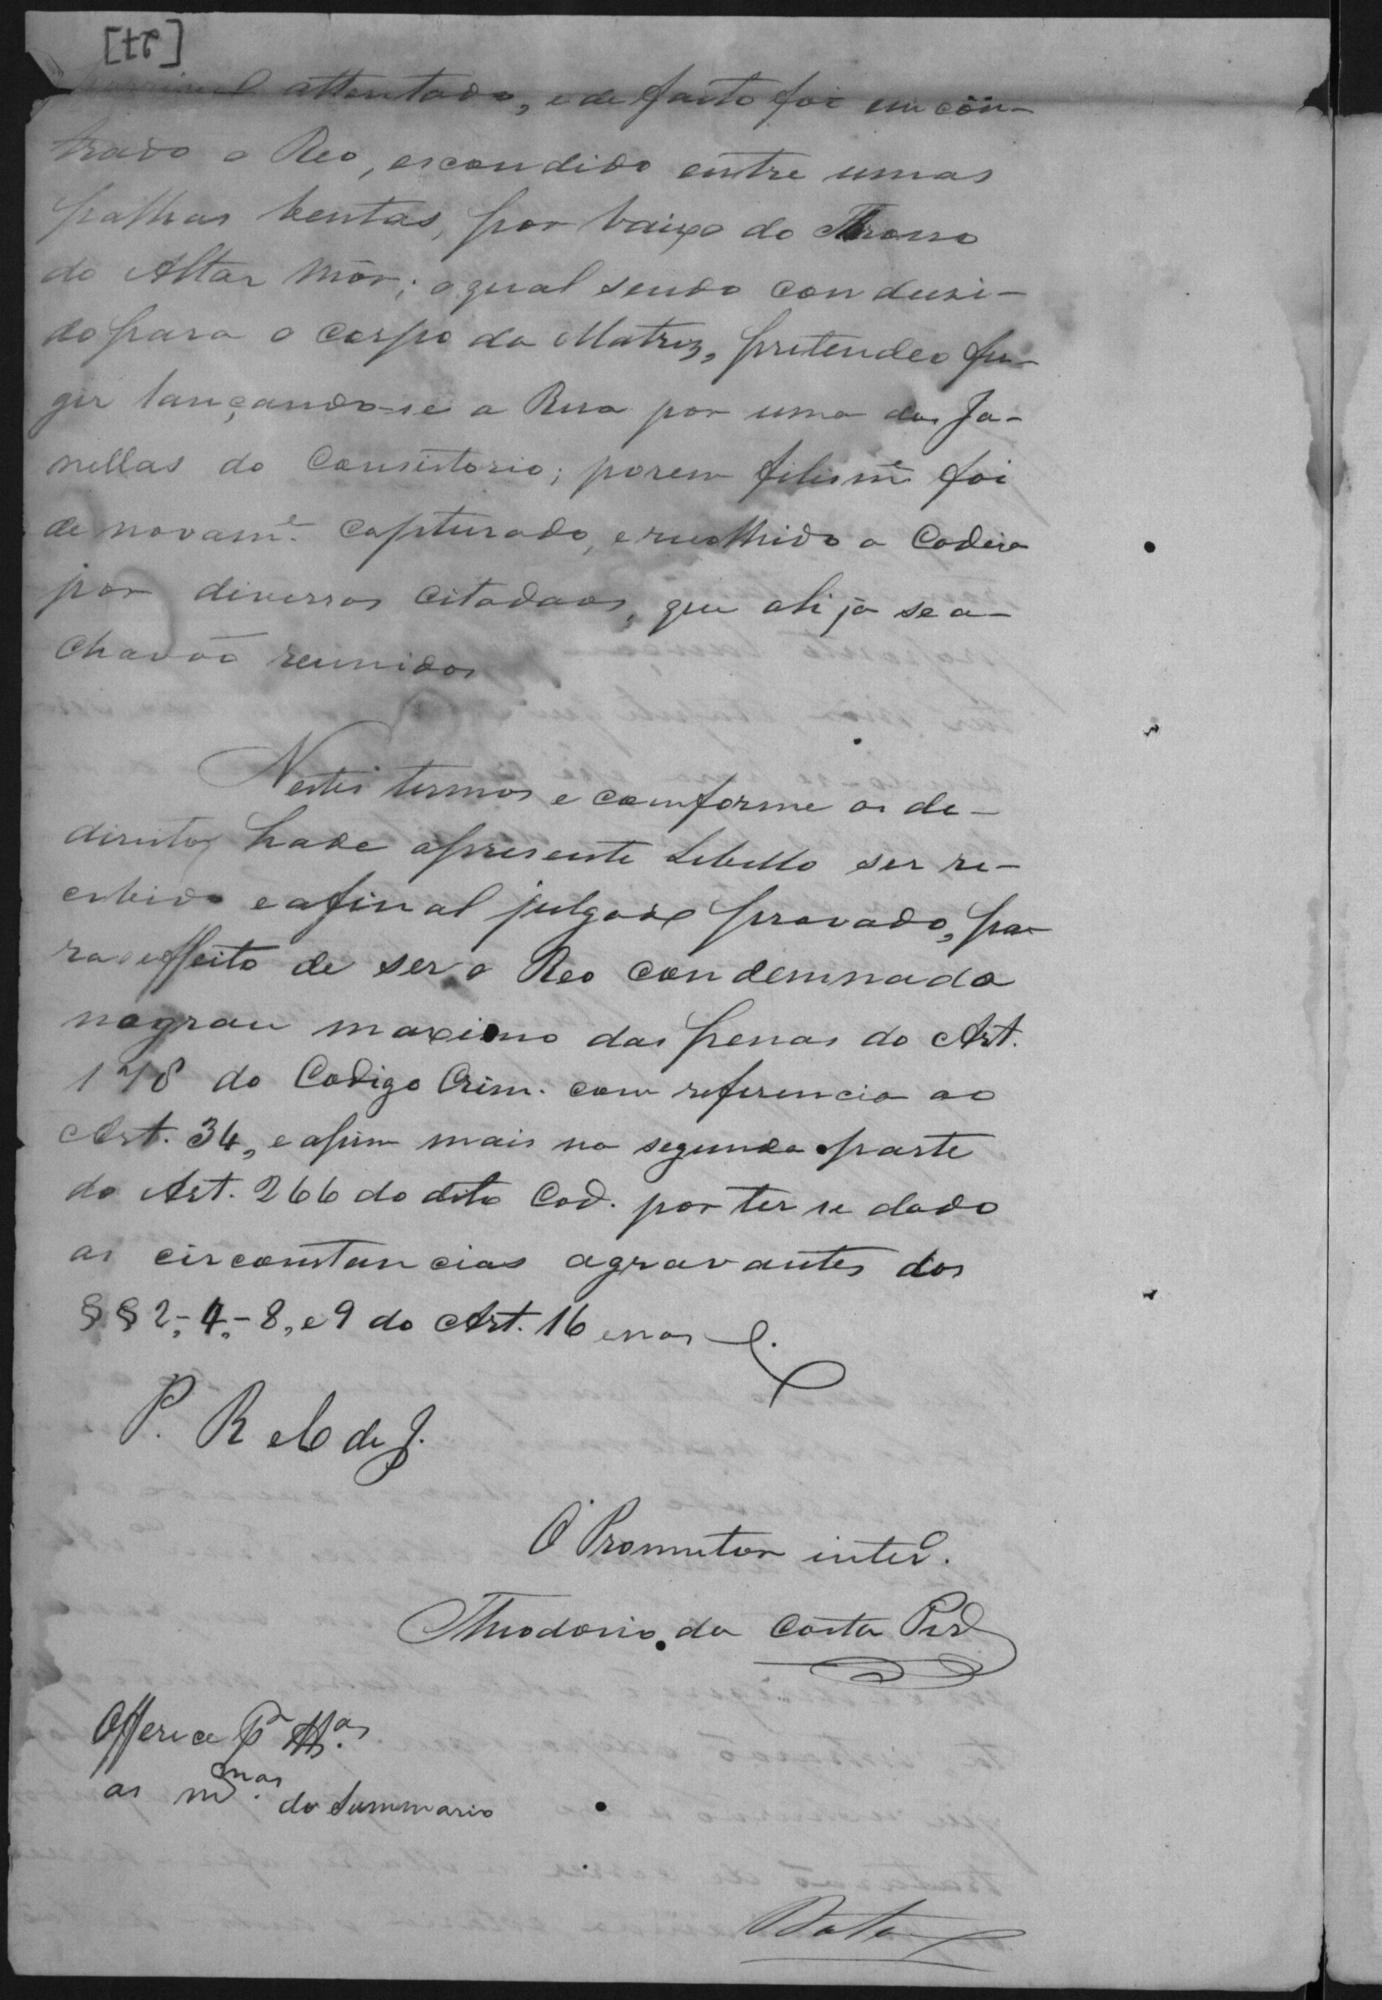 attentado, e de facto foi encon-
trado o Reo, escondido entre umas
palhas bentas, por baixo do Throno
do Altar Mór; o qual sendo condusi-
do para o corpo da Matriz, pretendeo fu-
gir lançando-se a Rua por uma das Ja-
nellas do Consistorio; porem felism.e foi
de novam.e capturado, e recolhido a Cadeia
por diversos Citadaos, que ali ja se a-
chavão reunidos
Nestes termos e comforme os de-
direito, hade o presente Libello ser re-
cebido e afinal julgado provado, pa-
ra o effeito de ser o Reo condemnado
no grau maximo das penas do Art.
178 do Codigo Crim. com referencia ao
Art. 34, e assim mais na segunda parte
do Art. 266 do dito Cod. por ter se dado
as circonstancias agravantes dos
§§ 2,-4,-8, e 9 do Art. 16
P. R e C de J.
O Promutor inter.o
Theodorio da Costa
Offerece p.r tt.as
as m.mas do Summario
Data